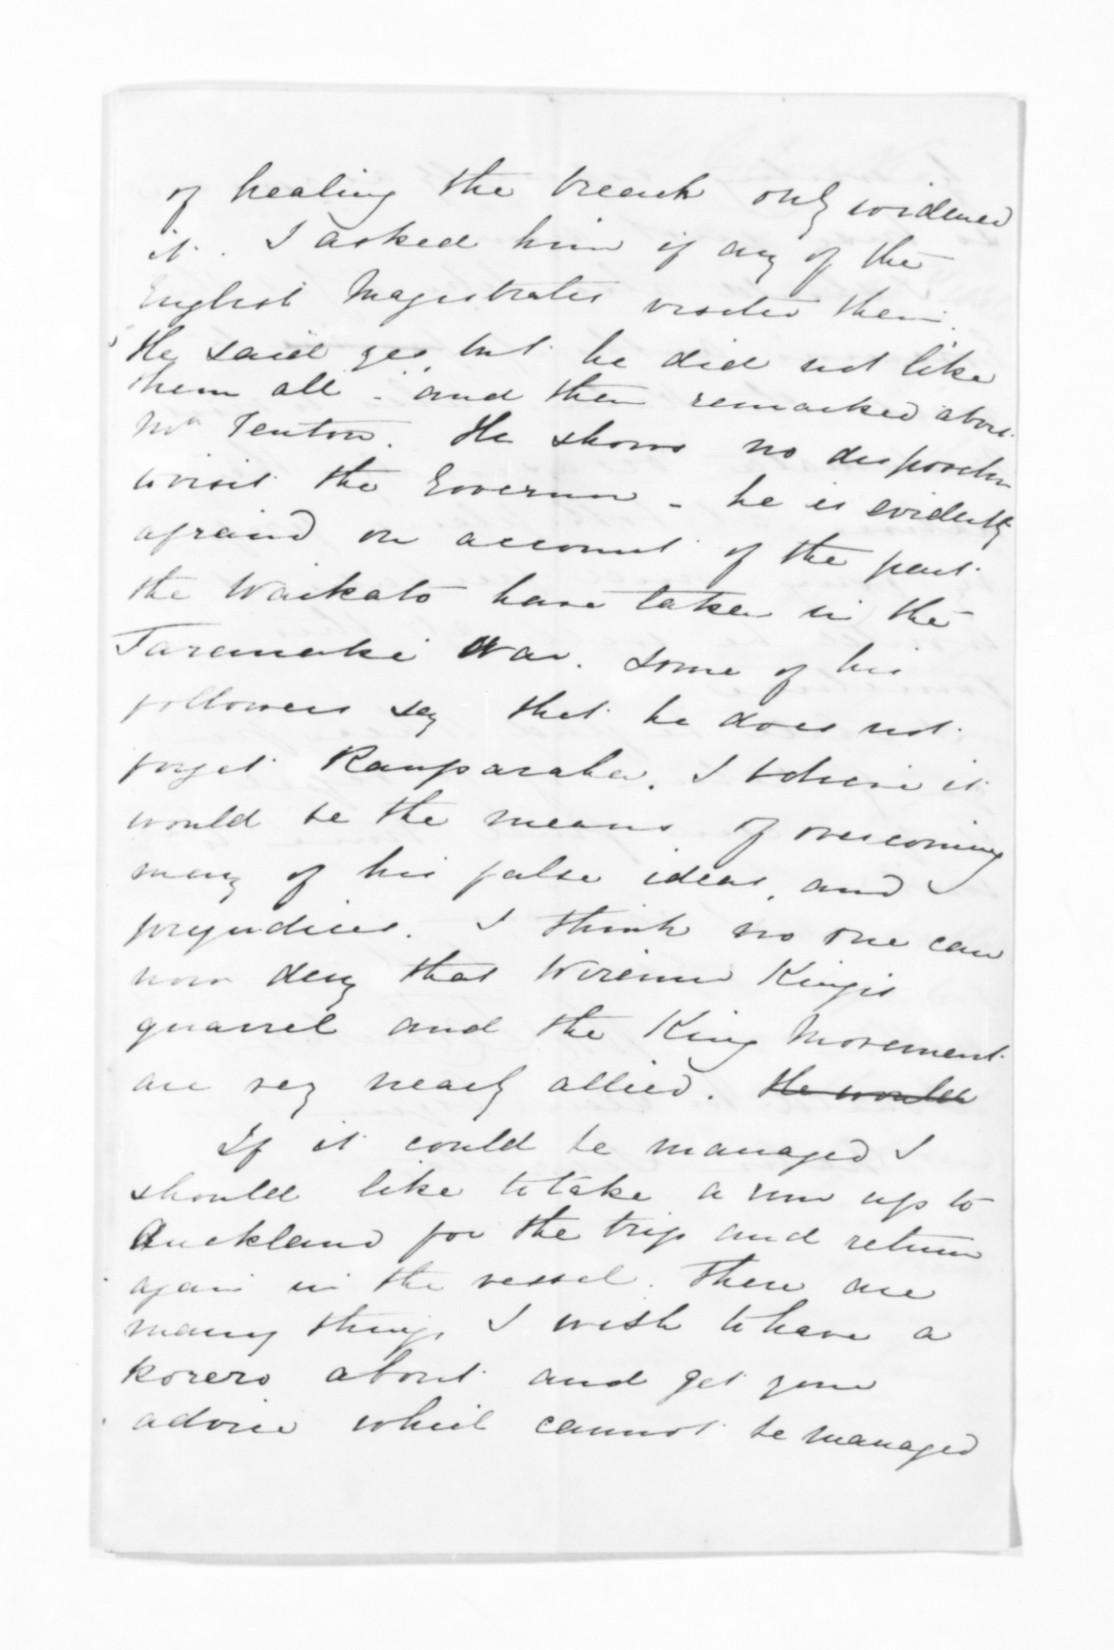 of healing the breach only widened
it. I asked him if any of the
English Magistrates visited them.
He said yes, but he did not like
them all - and then remarked about
Mr Fenton. He shows no disposition
to visit the Governor - he is evidently
afraid on account of the part
the Waikato have taken in the
Taranaki War. Some of his
followers say that he does not
forget Rauparaha. I believe it
would be the means of overcoming
many of his false ideas, and
prejudices. I think no one can
now deny that Wiremu Kingi's
quarrel and the King Movement
are very nearly allied. He would
If it could be managed I
should like to take a run up to
Auckland for the trip and return
again in the vessel. There are
many things I wish to have a
korero about and get your
advice which cannot be managed